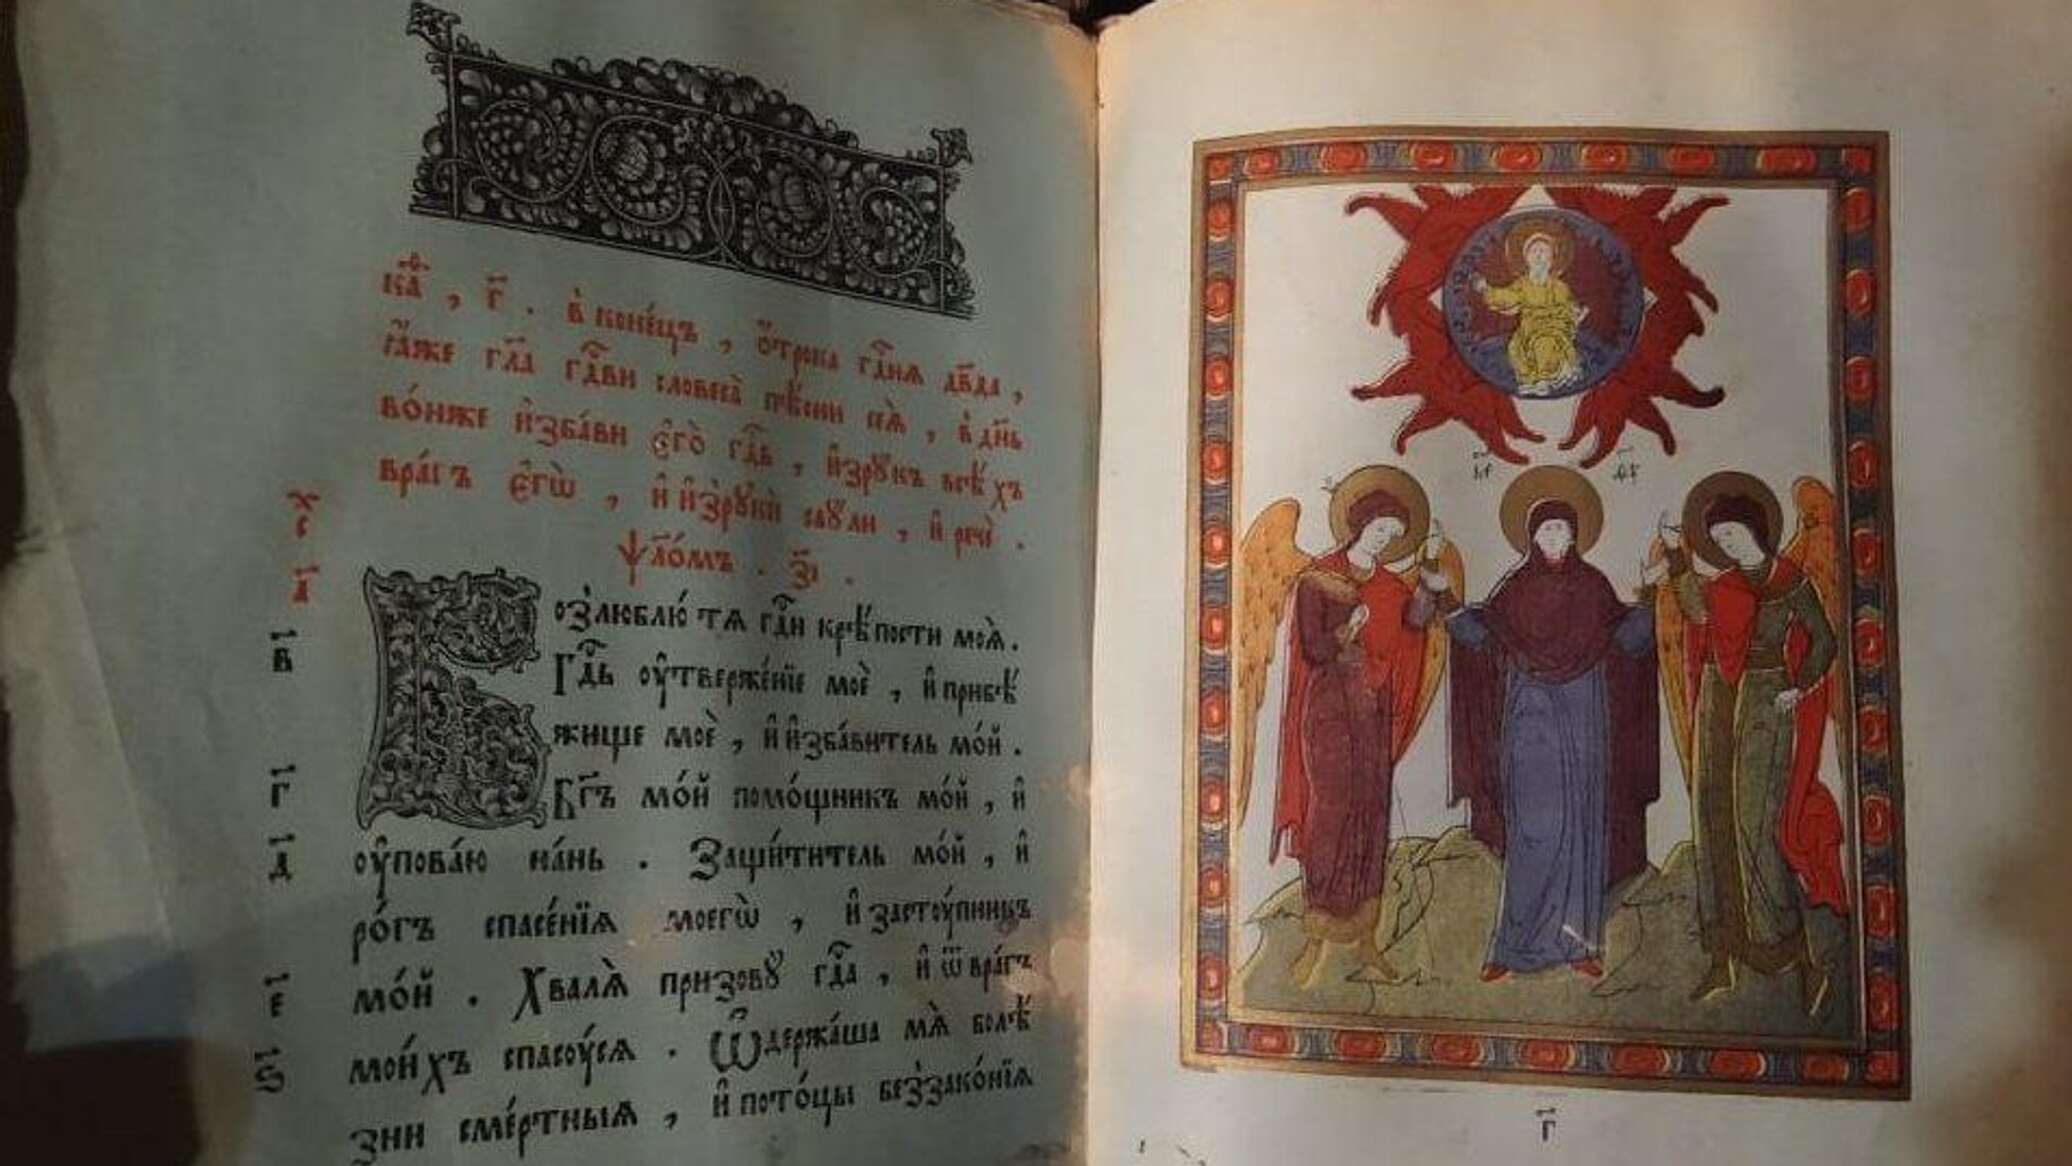 каѳ҇, г҃. в̾ коне́цъ, ѻ҆́трока гдⷭ҇нѧ дв҃да,
ꙗ҆́же гл҃а гдⷭ҇ви словеса̀ пѣ́сни сеѧ̀, в̾ дн҃ь
во́ньже и҆зба́ви є҆го̀ гдⷭ҇ь, и҆зрꙋ́къ всѣ́хъ
вра́гъ є҆гѡ̀, и҆ и҆зрꙋкѝ саꙋли, и҆ речѐ.
ѱало́мъ. з҃і.
Возлюблю́ тѧ гдⷭ҇и крѣ́пости моѧ̀.
Гдⷭ҇ь ᲂу҆твержде́нїе моѐ, и҆ прибѣ́
жище моѐ, и҆ и҆зба́витель мо́й.
Бг҃ъ мо́й помо́щникъ мо́й, и҆
ᲂу҆пова́ю на́нь. Защи́титель мо́й, и҆
ро́гъ спасе́нїѧ моегѡ̀, и҆ застꙋ́пникъ
мо́й. Хвалѧ̀ призовꙋ̀ гдⷭ҇а, и҆ ѿ вра́гъ
мои́хъ спасꙋ́сѧ. Ѡ҆держа́ша мѧ̀ болѣ́
зни сме́ртныѧ, и҆ пото́цы беззако́нїѧ
в҃
г҃
д҃
е҃
ѕ҃
г҃